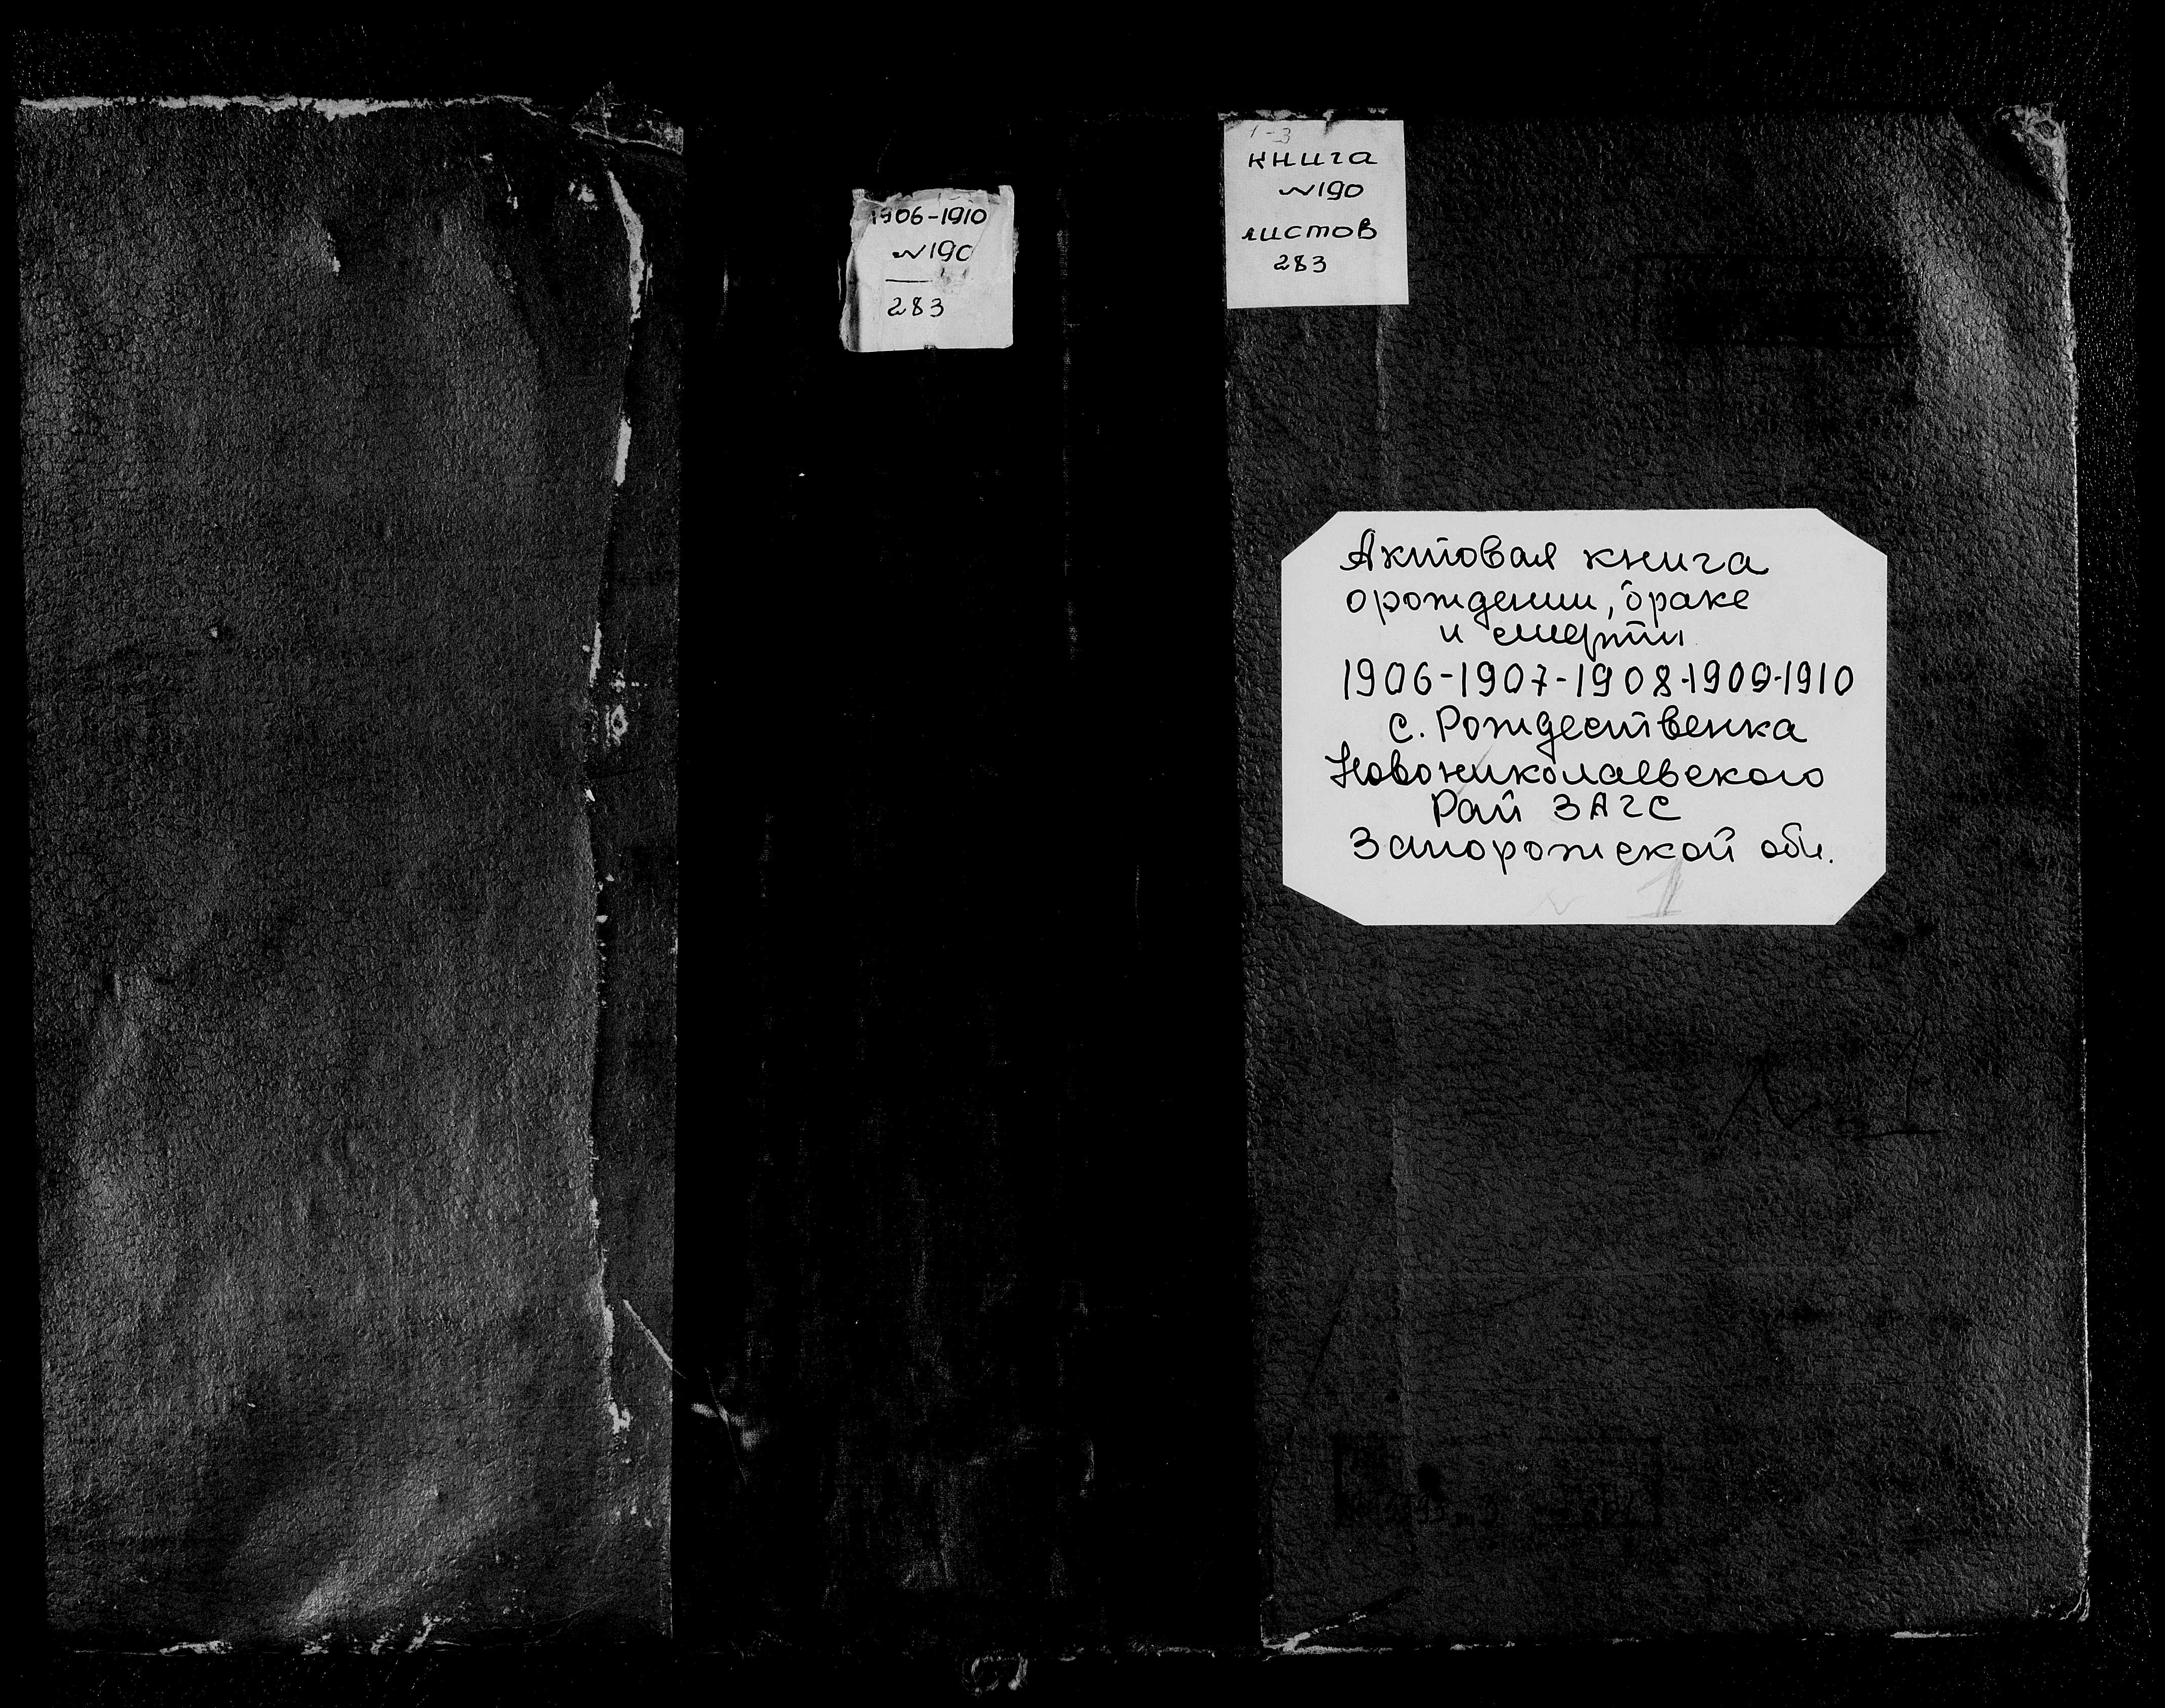 1906-1910
№190
283
1-3
книга
№190
листов
283
Актовая книга
о рождении, браке
и смерти
1906-1907-1908-1909-1910
с. Рождественка
Новониколаевского
Рай ЗАГС
Запорожской обл.
№ 1
№ 1